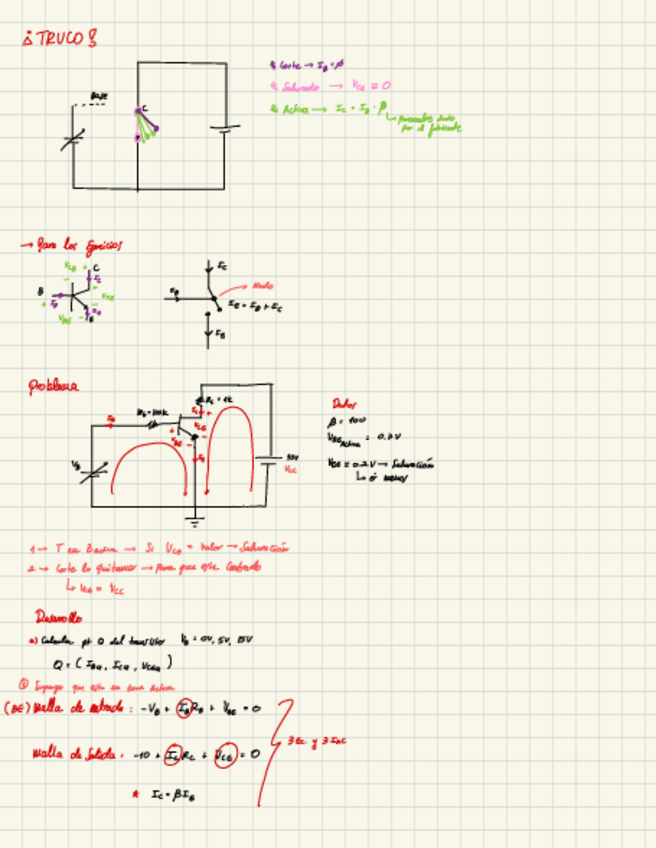 ¡TRUCO!
Base
C
* Corte → I_B = ∅
* Saturado → V_CE = 0
* Activa → I_C = I_B · β
↳ parametro dado
por el fabricante
→ Para los Ejercicios
V_CB + C
I_C
B
V_CE
I_B
V_BE
E
I_C
I_B
Nodo
I_E = I_B + I_C
I_E
problema
R_C = 1k
I_B
V_CE
V_BE
V_B
10V
V_CC
Datos
β = 100
V_BE Activa = 0.7V
V_CE = 0.2V → Saturación
↳ ó menor
1 → T en → Si V_CE = Valor → Saturación
2 → Corte lo → Para que este Cortado
↳ V_CC
Desarrollo
a) Calcular pt Q del transistor V_B = 0V, 5V, 15V
Q = ( I_BQ, I_CQ, V_CEQ )
① Supongo que esta en zona Activa
(BE) Malla de entrada : -V_B + I_B R_B + V_BE = 0
Malla de Salida : -10 + I_C R_C + V_CE = 0
3 Ec y 3 Inc
* I_C = β I_B